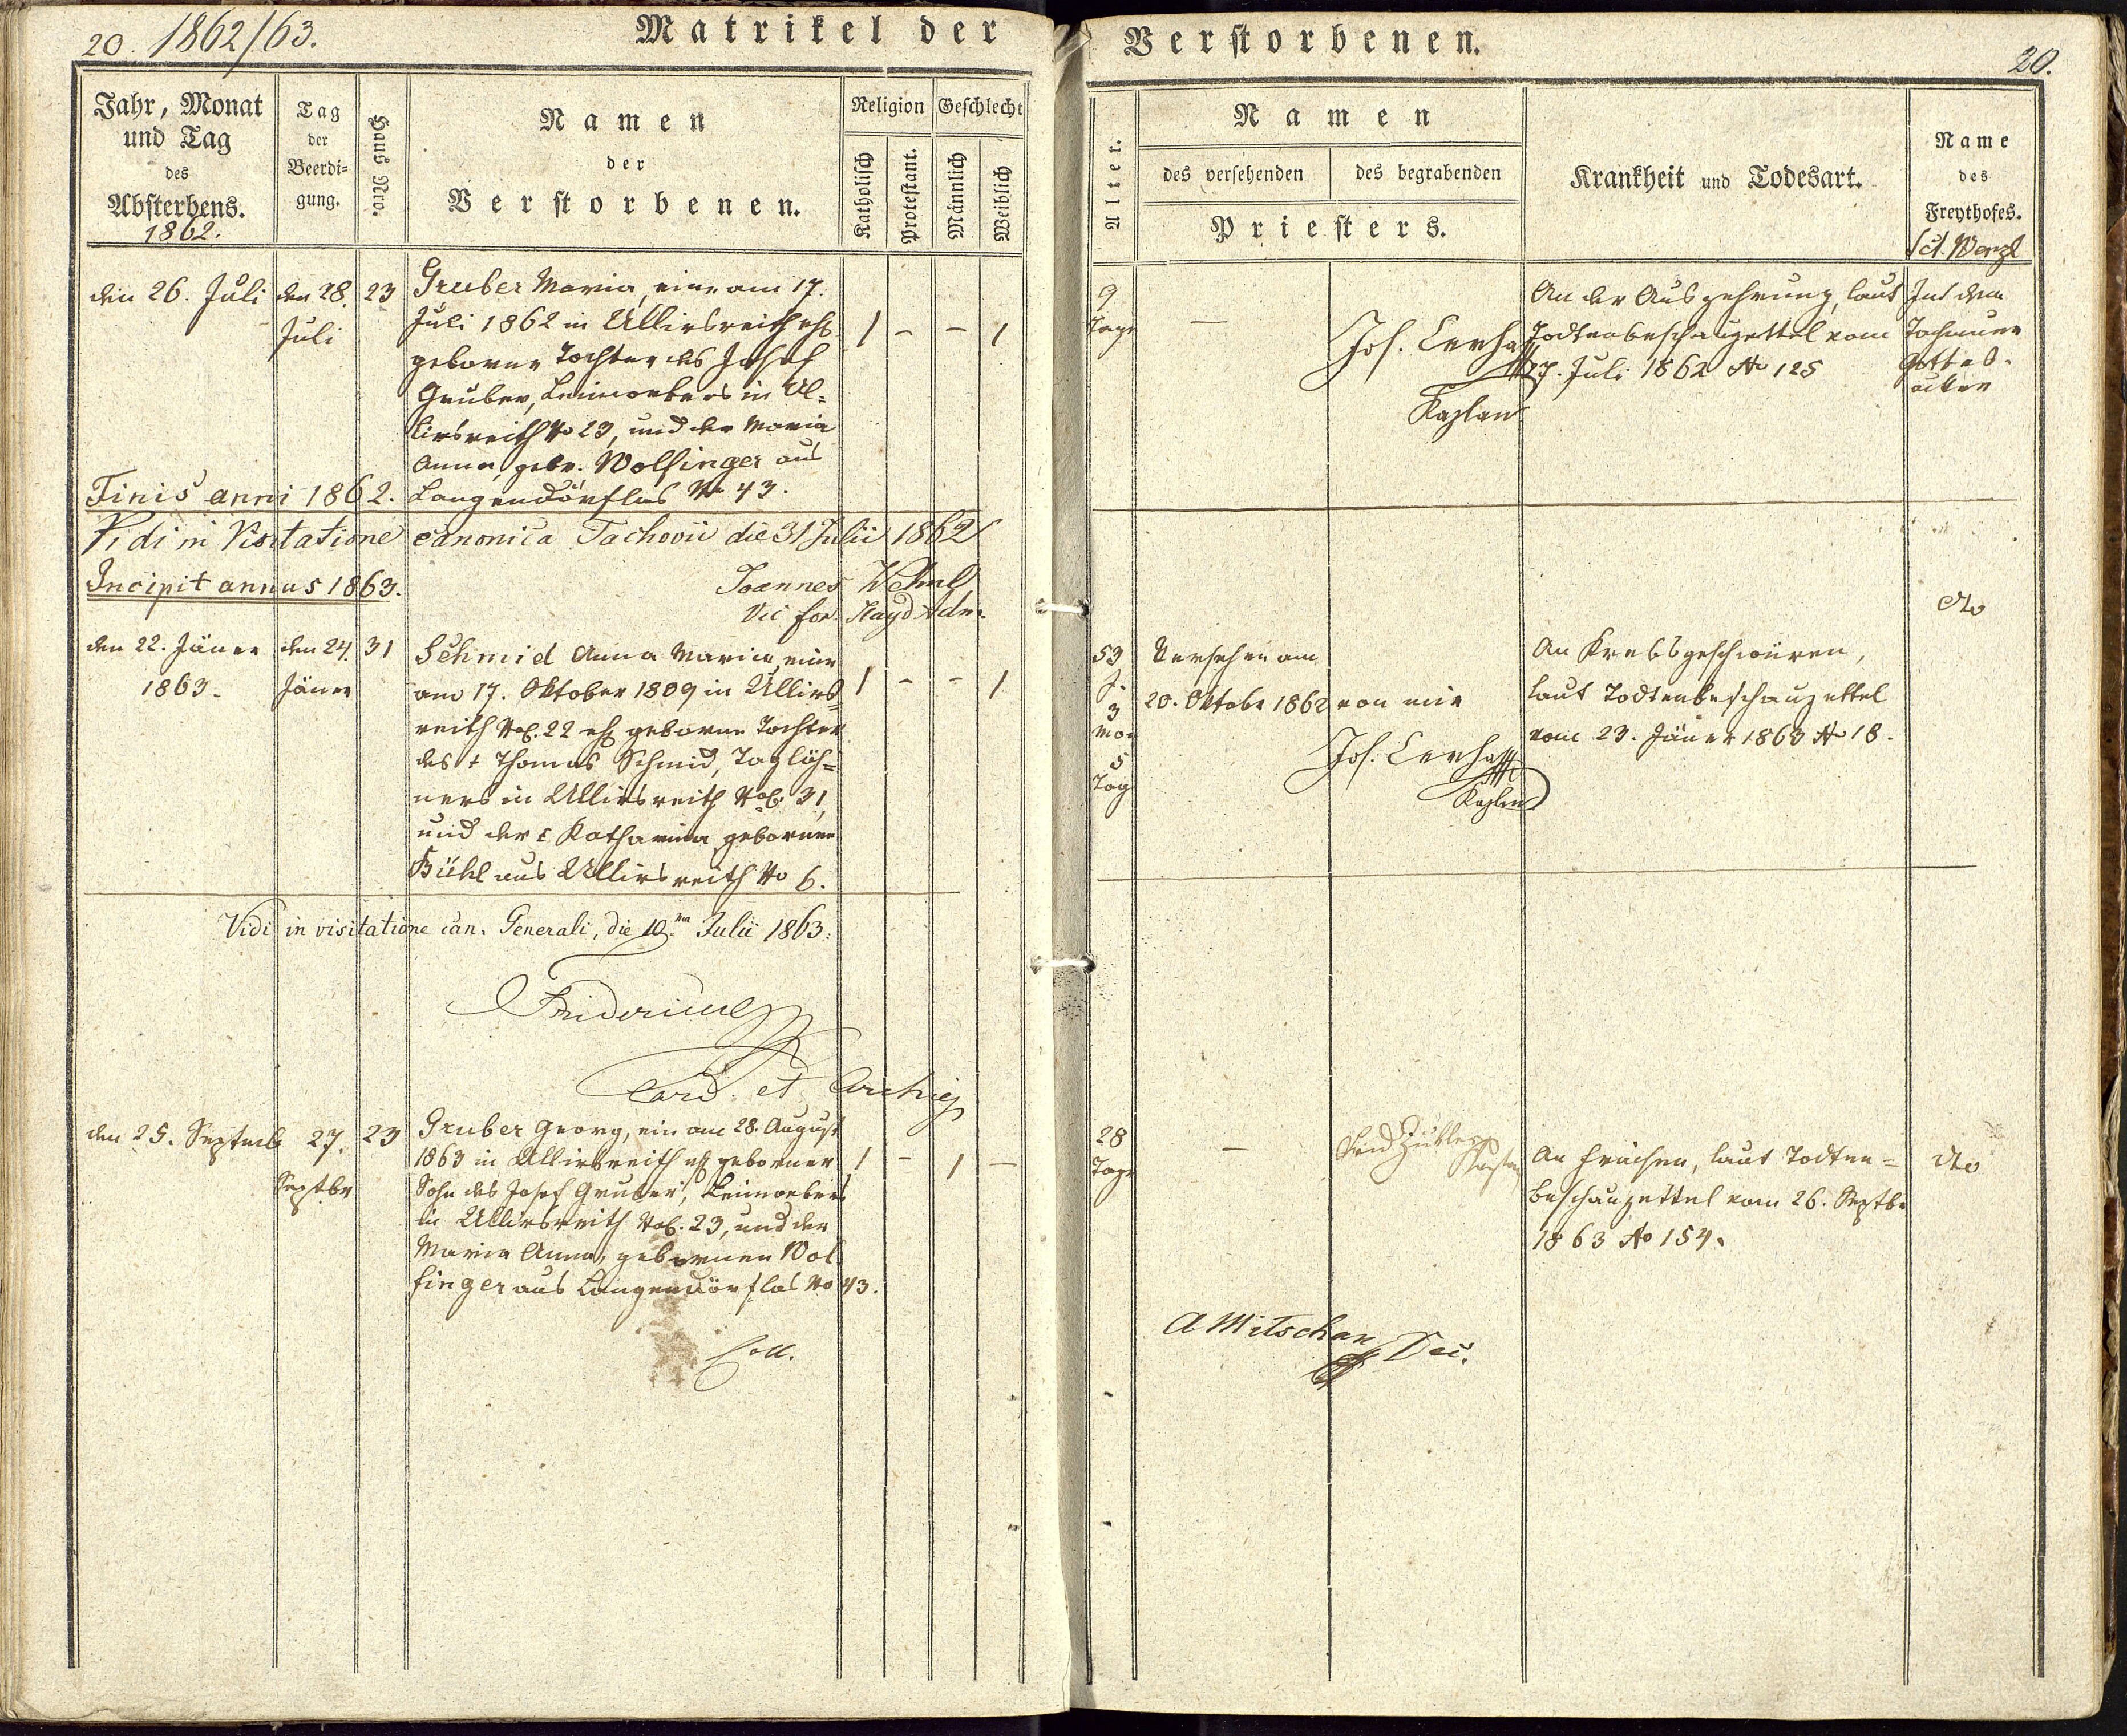 20. 1862/63.
Matrikel der
Jahr, Monat und Tag des Absterbens.
1862.
Tag der Beerdi=gung.
Haus Nro.
Namen der Verstorbenen.
Religion
Katholisch
Protestant.
Geschlecht
Männlich
Weiblich
den 26. Juli
den 28.
Juli
23
Gruber Maria, eine am 17.
Juli 1862 in Ullirsreith
geborene Tochter des Josef
Gruber, Leinwebers in Ul=
lirsreith No 23, und der Maria
Anna, gebr. Wolfinger aus
Langendörflas No 43.
1 - - 1
Finis anni 1862.
Vidi in Visitatione canonica Tachovii die 31 Julii 1862
Joannes
Vic for Hayd Adm.
Incipit annus 1863.
den 22. Jäner
1863.
den 24.
Jäner
31
Schmid Anna Maria, eine
am 17. Oktober 1809 in Ullirs=
reith NoC. 22 geborene Tochter
des † Thomas Schmid, Taglöh=
ners in Ullirsreith NoC. 31,
und der † Katharina geborenen
Bühl aus Ullirsreith No 6.
1 - - 1
Vidi in visitatione can. Generali, die 10ma Julii 1863.
Fridericus
Card. et Archiep
den 25. Septemb
27.
Septbr
23
Gruber Georg, ein am 28. August
1863 in Ullirsreith geborener
Sohn des Josef Gruber, Leinwebers
in Ullirsreith NoC. 23, und der
Maria Anna, gebornen Wol
finger aus Langendörflas No 43.
1 - 1 -
Coll.
Verstorbenen.
20.
Alter.
Namen
des versehenden
des begrabenden
Priesters.
Krankheit und Todesart.
Name des Freythofes.
Sct. Wenzl
9
Tage
—
Jos. Cerha
Kaplan
An der Auszehrung, laut
Todtenbeschauzettel vom
27. Juli 1862 No 125
Auf dem
Tachauer
Gottes-
acker
53
J.
3
Mon
5
Tag
Versehen am
20. Oktobr 1862 von mir
Jos. Cerha
Kaplan
An Krebsgeschwüren,
laut Todtenbeschauzettel
vom 23. Jäner 1863 No 18.
dto
28
Tage
—
An Fraisen, laut Todten=
beschauzettel vom 26. Septbr
1863 No 154.
dto
A Mitschan
Dec.